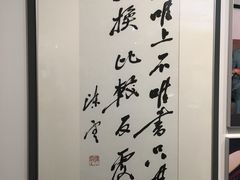 唯上不唯書只
換比較反復
陳雲